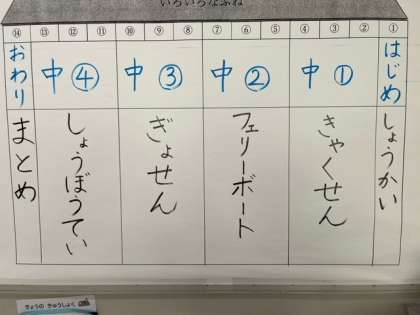 いろいろなふね
① ② ③ ④ ⑤ ⑥ ⑦ ⑧ ⑨ ⑩ ⑪ ⑫ ⑬ ⑭
はじめ
しょうかい
中①
きゃくせん
中②
フェリーボート
中③
ぎょせん
中④
しょうぼうてい
おわり
まとめ
きょうの きゅうしょく